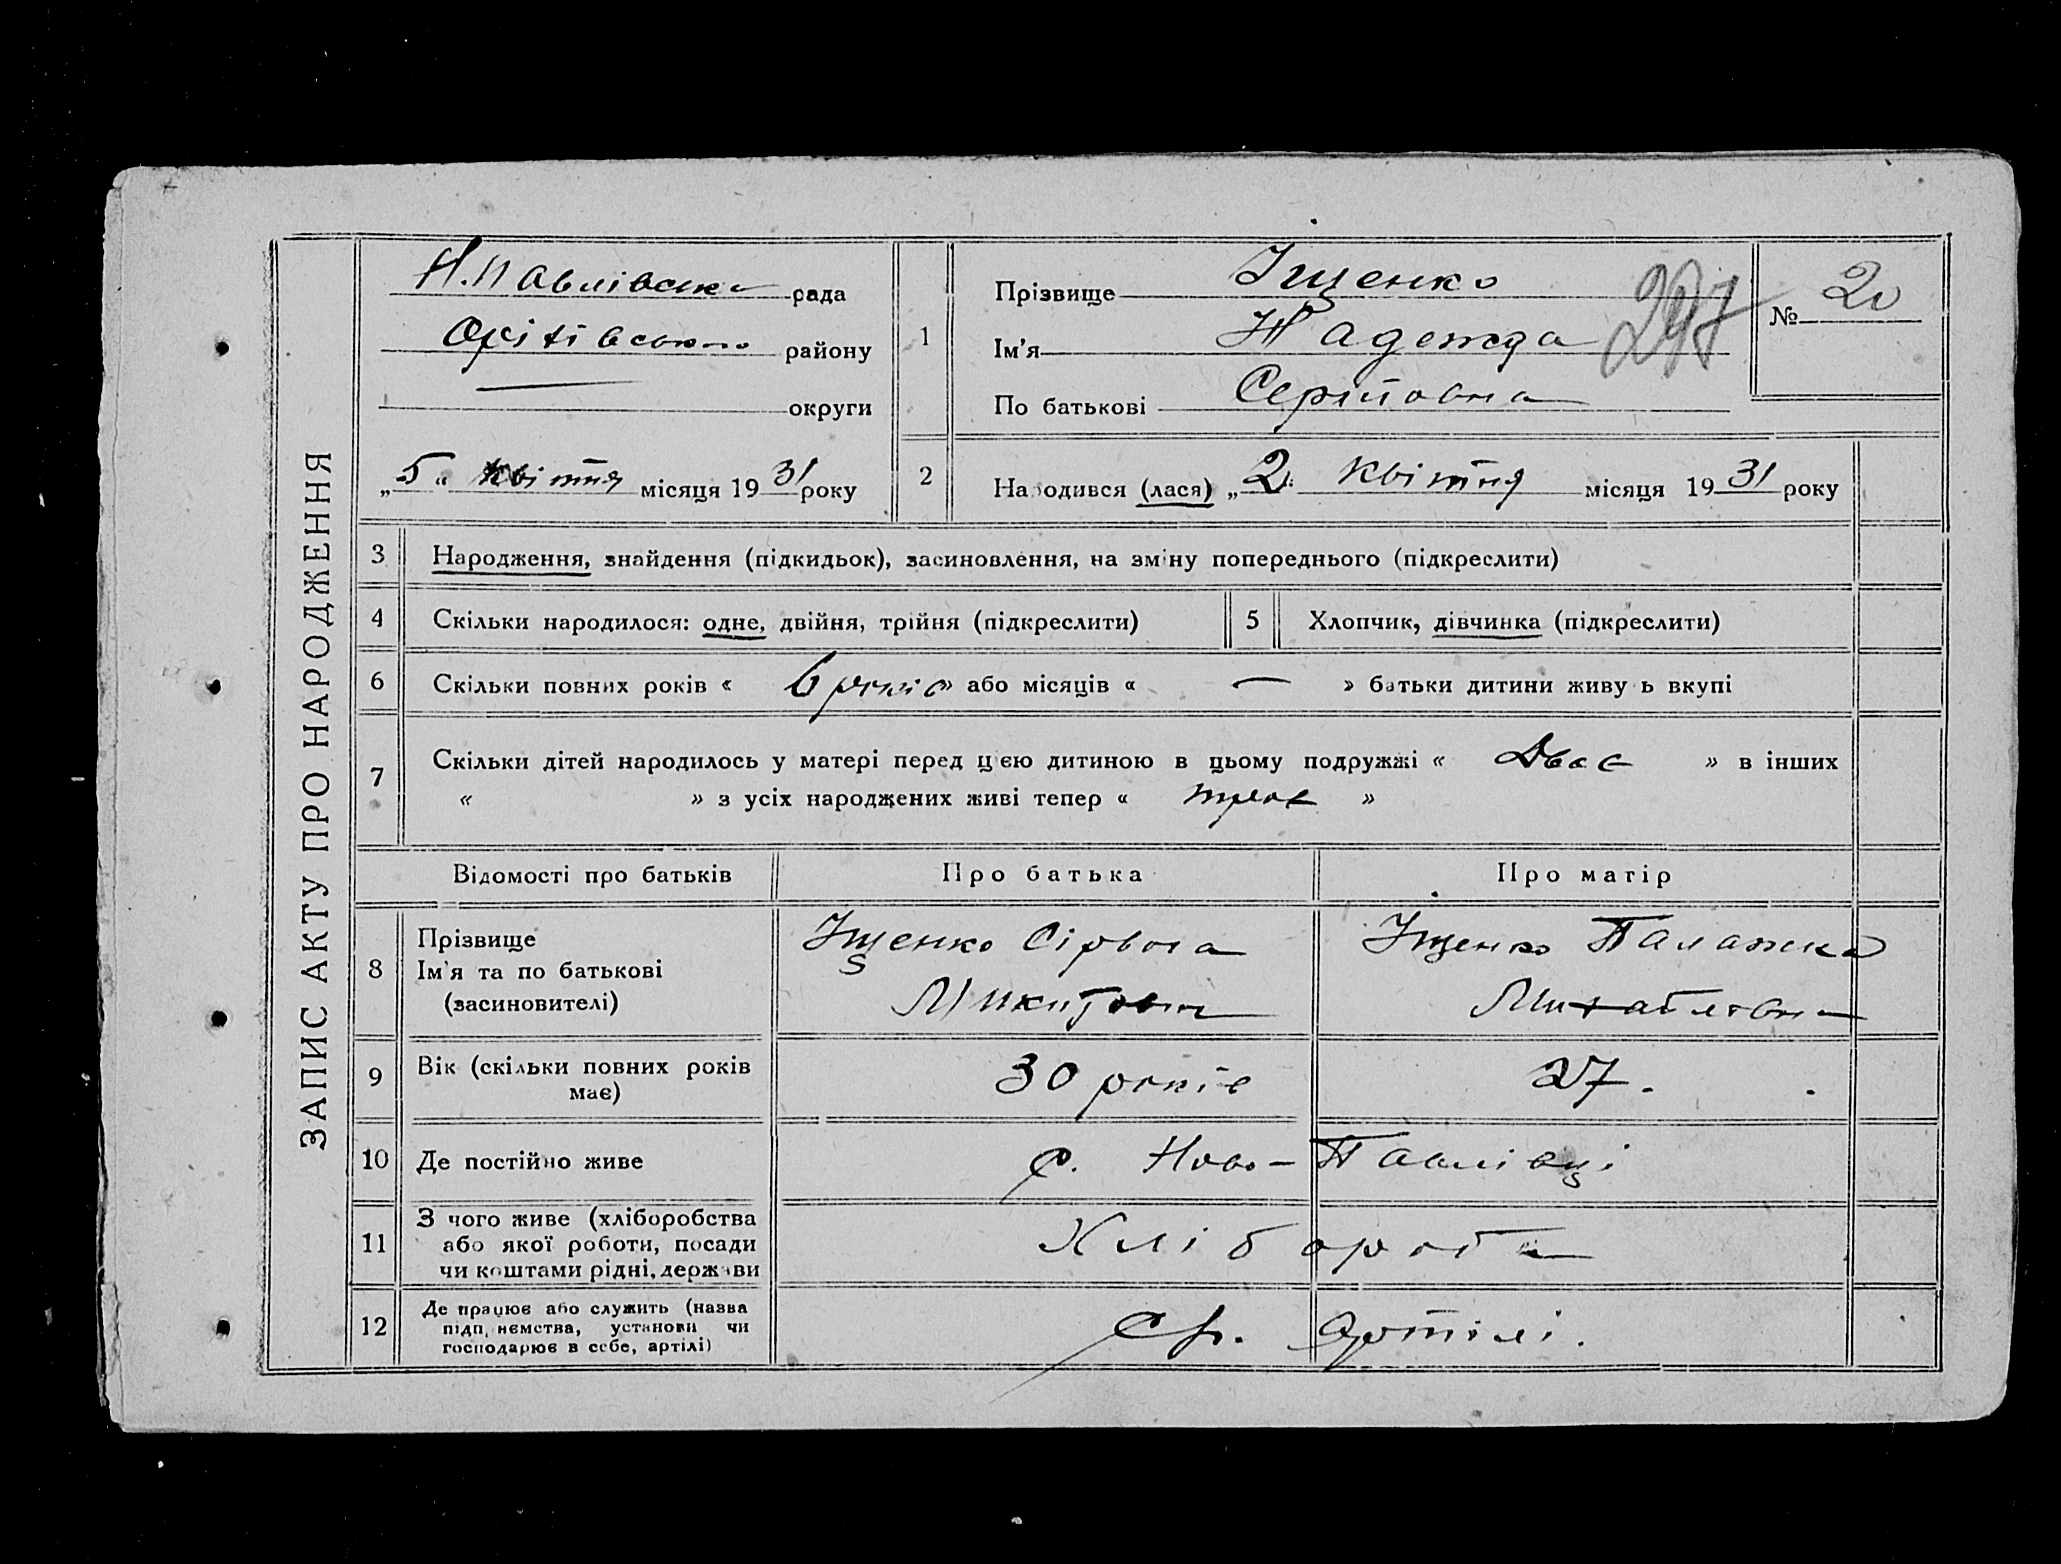 ЗАПИС АКТУ ПРО НАРОДЖЕННЯ
Н.Павлівська рада
Оріхівського району
округи
„5“ квітня місяця 1931 року
1
Прізвище Іщенко
Ім'я Надежда
По батькові
297
№ 20
2
Народився (лася) „2“ квітня місяця 1931 року
3 Народження, знайдення (підкидьок), засиновлення, на зміну попереднього (підкреслити)
4 Скільки народилося: одне, двійня, трійня (підкреслити)
5 Хлопчик, дівчинка (підкреслити)
6 Скільки повних років « 6 років » або місяців « — » батьки дитини живуть вкупі
7 Скільки дітей народилось у матері перед цією дитиною в цьому подружжі « Двае » в інших
« » з усіх народжених живі тепер « трое »
Відомості про батьків Про батька Про матір
8
Прізвище
Ім'я та по батькові
(засиновителі)
Іщенко
Микитович
Іщенко Палажка
Михайловна
9 Вік (скільки повних років
має)
30 років 27.
10 Де постійно живе с. Ново-Павлівці
11 З чого живе (хліборобства
або якої роботи, посади
чи коштами рідні, держави
Хлібороба
12 Де працює або служить (назва
підприємства, установи чи
господарює в себе, артілі)
Артілі.